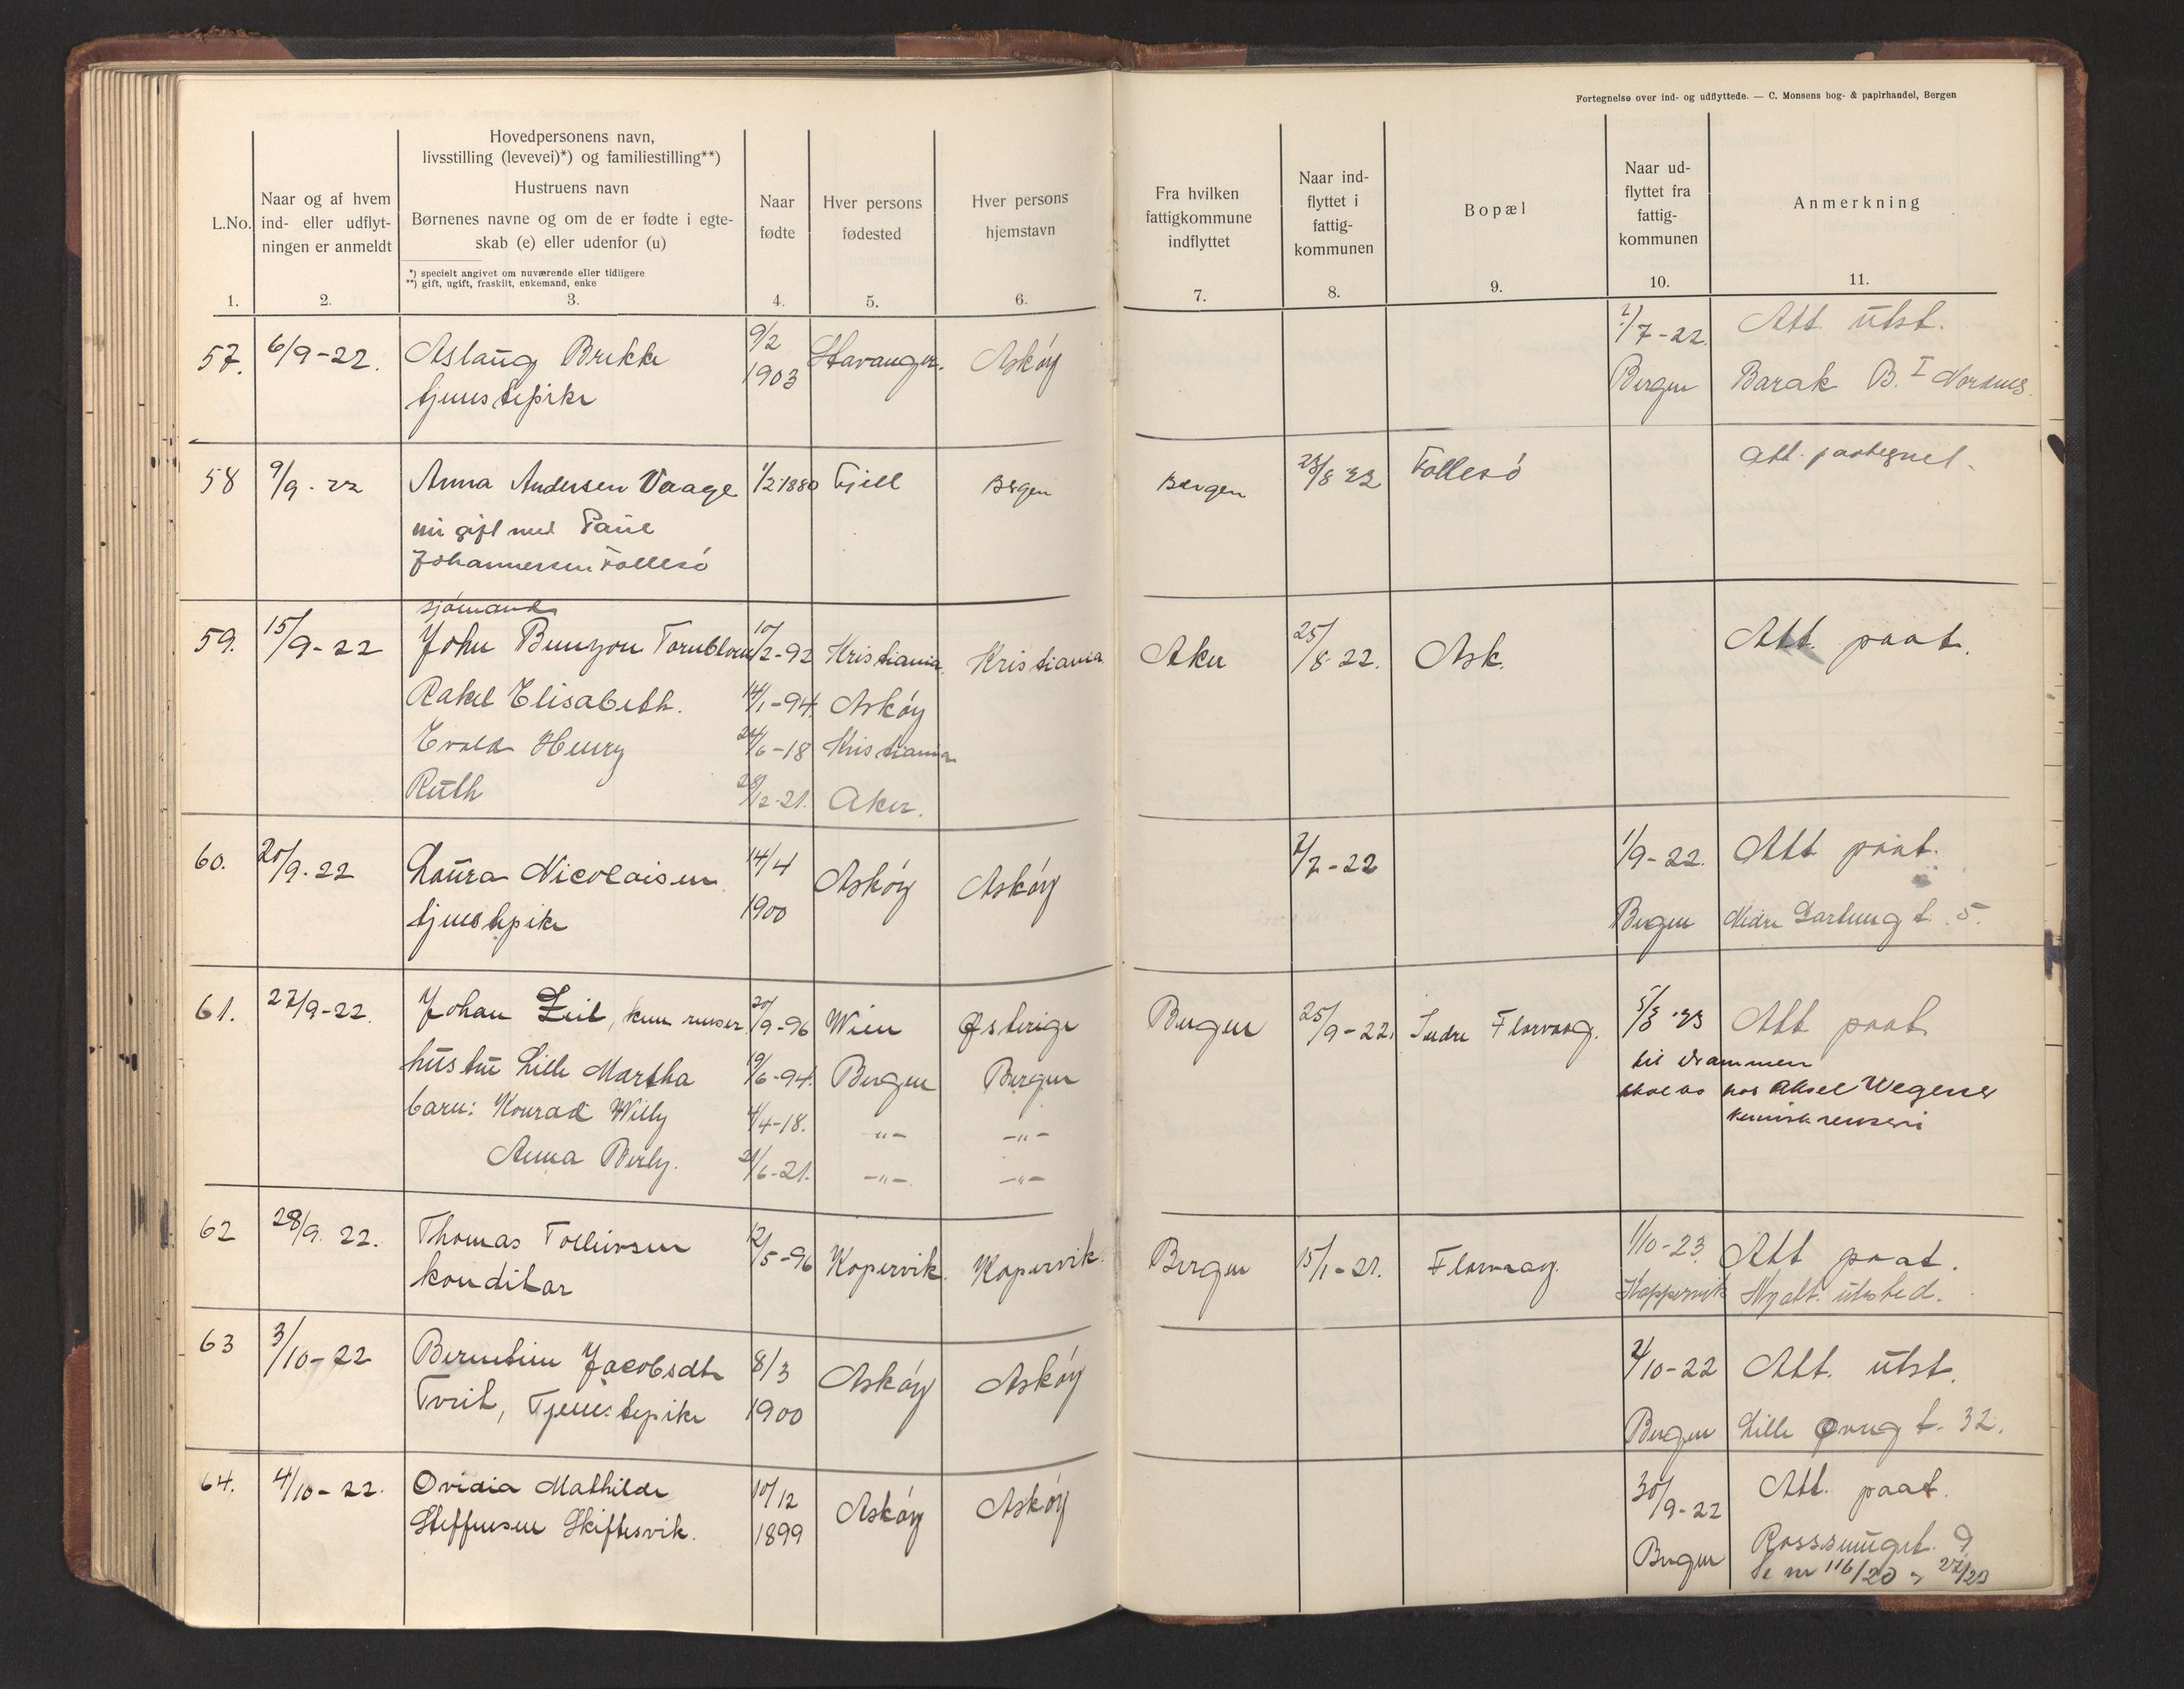 Fortegnelse over ind- og udflyttede. — C. Monsens bog- & papirhandel, Bergen
L.No.
1.
Naar og af hvem
ind- eller udflyt-
ningen er anmeldt
2.
Hovedpersonens navn,
livsstilling (levevei)*) og familiestilling**)
Hustruens navn
Børnenes navne og om de er fødte i egte-
skab (e) eller udenfor (u)
*) specielt angivet om nuværende eller tidligere
**) gift, ugift, fraskilt, enkemand, enke
3.
Naar
fødte
4.
Hver persons
fødested
5.
Hver persons
hjemstavn
6.
Fra hvilken
fattigkommune
indflyttet
7.
Naar ind-
flyttet i
fattig-
kommunen
8.
Bopæl
9.
Naar ud-
flyttet fra
fattig-
kommunen
10.
Anmerkning
11.
57. 6/9-22. Aslaug Brekke 9/2 1903 Stavanger. Askøy /7-22. Att utst.
tjenestepike Bergen Barak B. I Nordnes.
58 9/9-22 Anna Andersen Vaage 1/2-1880 Fjell Bergen Bergen 23/8 22 Follesø Att. paategnet.
nu gift med Paul
Johannessen Follesø
sjømand
59. 15/9-22 John Bunzon Tornblom 10/2-92 Kristiania Kristiania Aker 25/8-22. Ask. Att. paat.
Rakel Elisabeth. 14/1-94. Askøy
Evald Henry 24/6-18 Kristiania
Ruth 28/12-21. Aker.
60. 20/9-22 Laura Nicolaisen 14/4 1900 Askøy Askøy 2/2-22 1/9-22. Att paat.
tjenestepike Bergen Nedre 5.
61. 27/9-22. Johan Zeil, kem renser 20/9-96 Wien Østerige Bergen 25/9-22. Indre Florvaag. 5/3-23 Att paat
hustru Lille Martha 19/6-94. Bergen Bergen til Drammen
barn: Konrad Willy 4/4-18. -"- -"- hos Aksel Wegener
kemisk renseri
Anna Berly. 21/6-21. -"- -"-
62 28/9 22. Thomas Tollevsen 12/5-96 Kopervik. Kopervik. Bergen 15/1-21. Florvaag. 1/10-23 Att paat.
konditor Koppervik Ny att. utsted.
63 3/10-22 Berentine Jacobsdtr 8/3 1900 Askøy Askøy 2/10-22 Att. utst.
Tveit, Tjenestepike Bergen Lille Øvregt. 32.
64. 4/10-22. Ovidia Mathilde 10/12 1899 Askøy Askøy 30/9-22 Att. paat.
Steffensen Skiftesvik. Bergen 9
Se nr 116/20 27/23